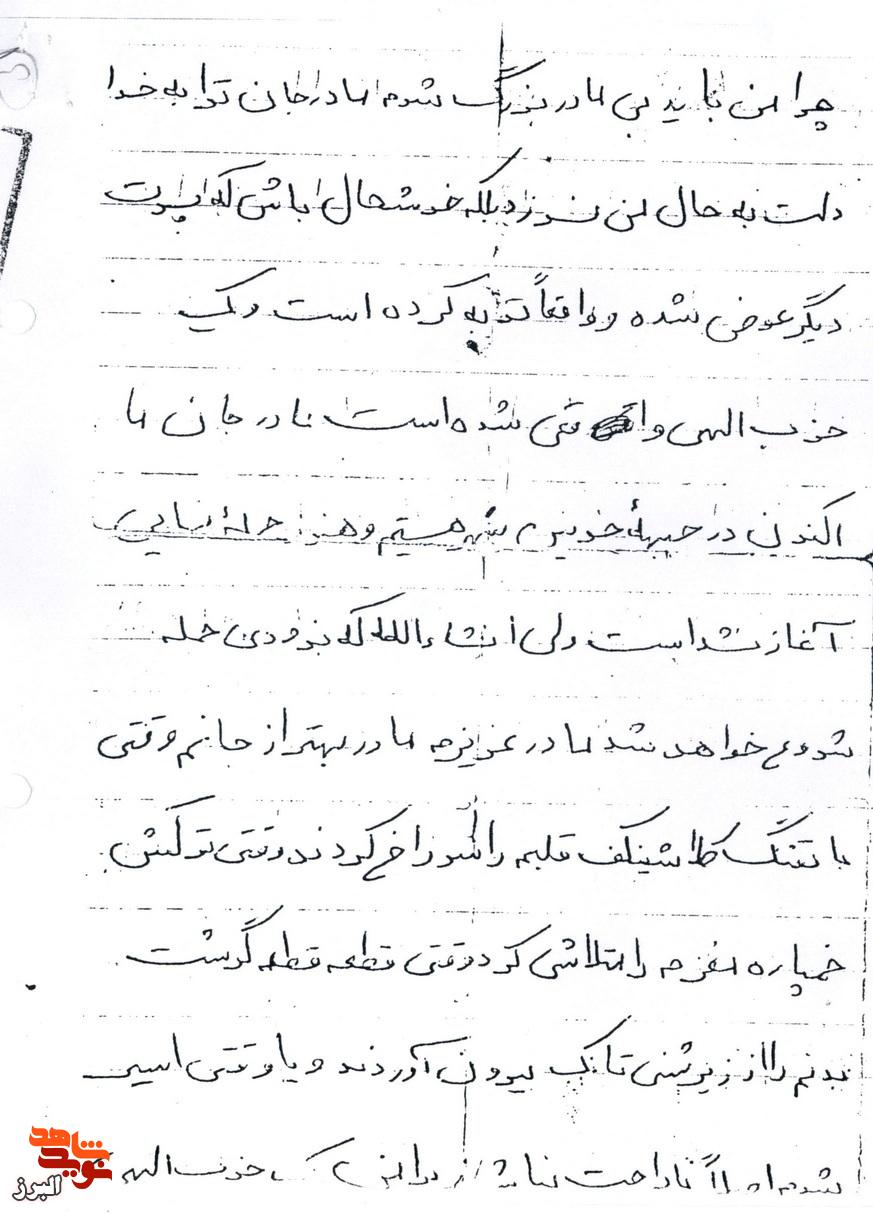 چرا من باید بی مادر بزرگ شوم مادرجان ترا به خدا
دلت به حال من نسوزد بلکه خوشحال باش که پسرت
دیگر عوض شده و واقعاً توبه کرده است و یک
حزب الهی واقعی شده است مادر جان ما
اکنون در جبههٔ خونین شهر هستیم و هنوز حملهٔ نهایی
آغاز نشداست ولی انشاءالله که بزودی حمله
شروع خواهد شد مادر عزیزم مادر بهتر از جانم وقتی
با تفنگ کلاشینکف قلبم را سوراخ کردند وقتی ترکش
خمپاره مغزم را متلاشی کرد وقتی قطعه قطعه گوشت
بدنم را از زیر شنی تانک بیرون آوردند و یا وقتی اسیر
شدم اصلاً ناراحت نباش زیرا من یک حزب الهی
نوید شاهد
البرز